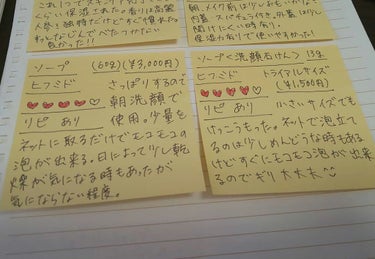 くらい保湿された。香りは高麗
人参と独特だけどすぐ慣れた。
朝、メイク前は少しおもいかも。
内蓋、スパチュラ付き、外蓋は少し
開けにくい時あり。
保湿力ありで使いやすかった。
ソープ (60g) ¥3,000円)
ヒフミド
♥♥♥♥♡
リピ あり
さっぱりするので
朝洗顔で
使用。少量を
ネットに取るだけでモコモコの
泡が出来る。日によって少し乾
燥が気になる時もあったが
気にならない程度。
ソープ<洗顔石けん> 13g
ヒフミド トライアルサイズ
(¥1,500円)
♥♥♥♥♡
リピ あり
小さいサイズでも
けっこうもった。ネットで泡立て
るのは少しめんどうな時もある
けどすぐにモコモコ泡が出来
るのでギリ大丈夫